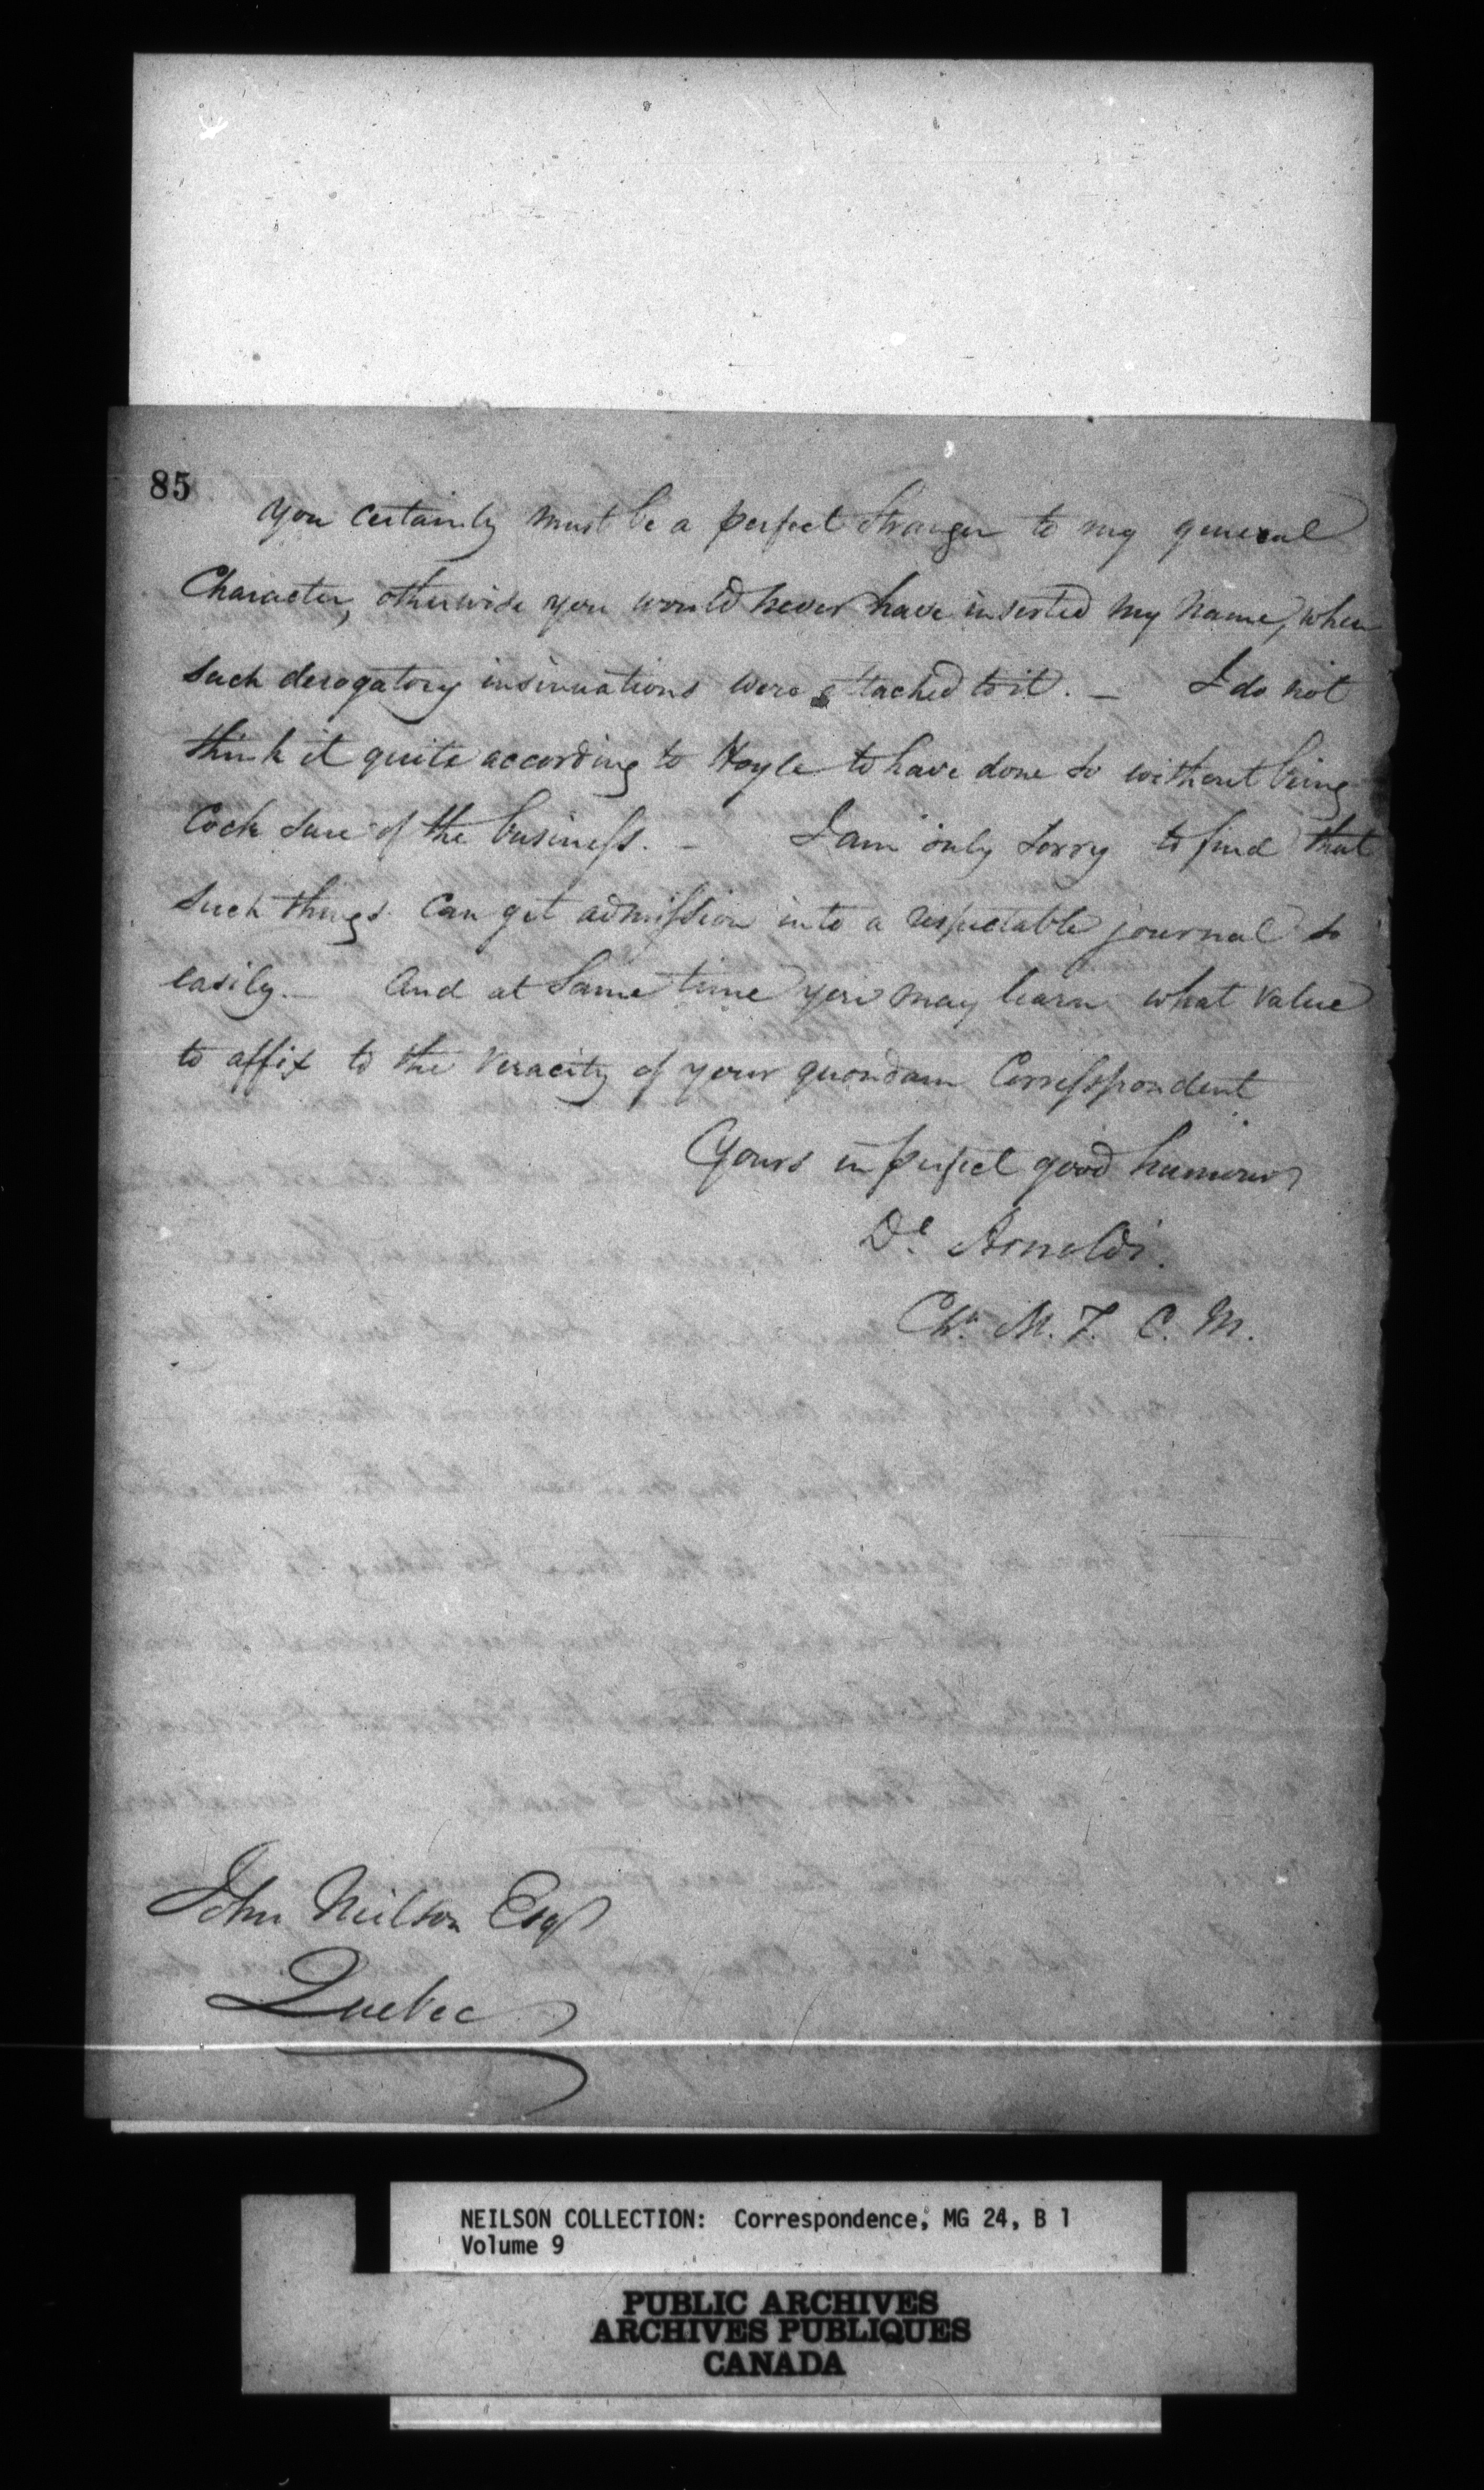 85
You certainly must be a perfect Stranger to my general
Character, otherwise you would never have inserted my name, when
such derogatory insinuations were attached to it. — I do not
think it quite according to Hoyle to have done so without being
Cock sure of the business. — I am only sorry to find that
such things can get admission into a respectable journal so
easily. — And at same time you may learn what value
to affix to the veracity of your quondam Correspondent
Yours in perfect good humour
Dl. Arnoldi.
Chn. M. T. C. M.
John Neilson Esqr
Quebec
NEILSON COLLECTION: Correspondence, MG 24, B 1
Volume 9
PUBLIC ARCHIVES
ARCHIVES PUBLIQUES
CANADA